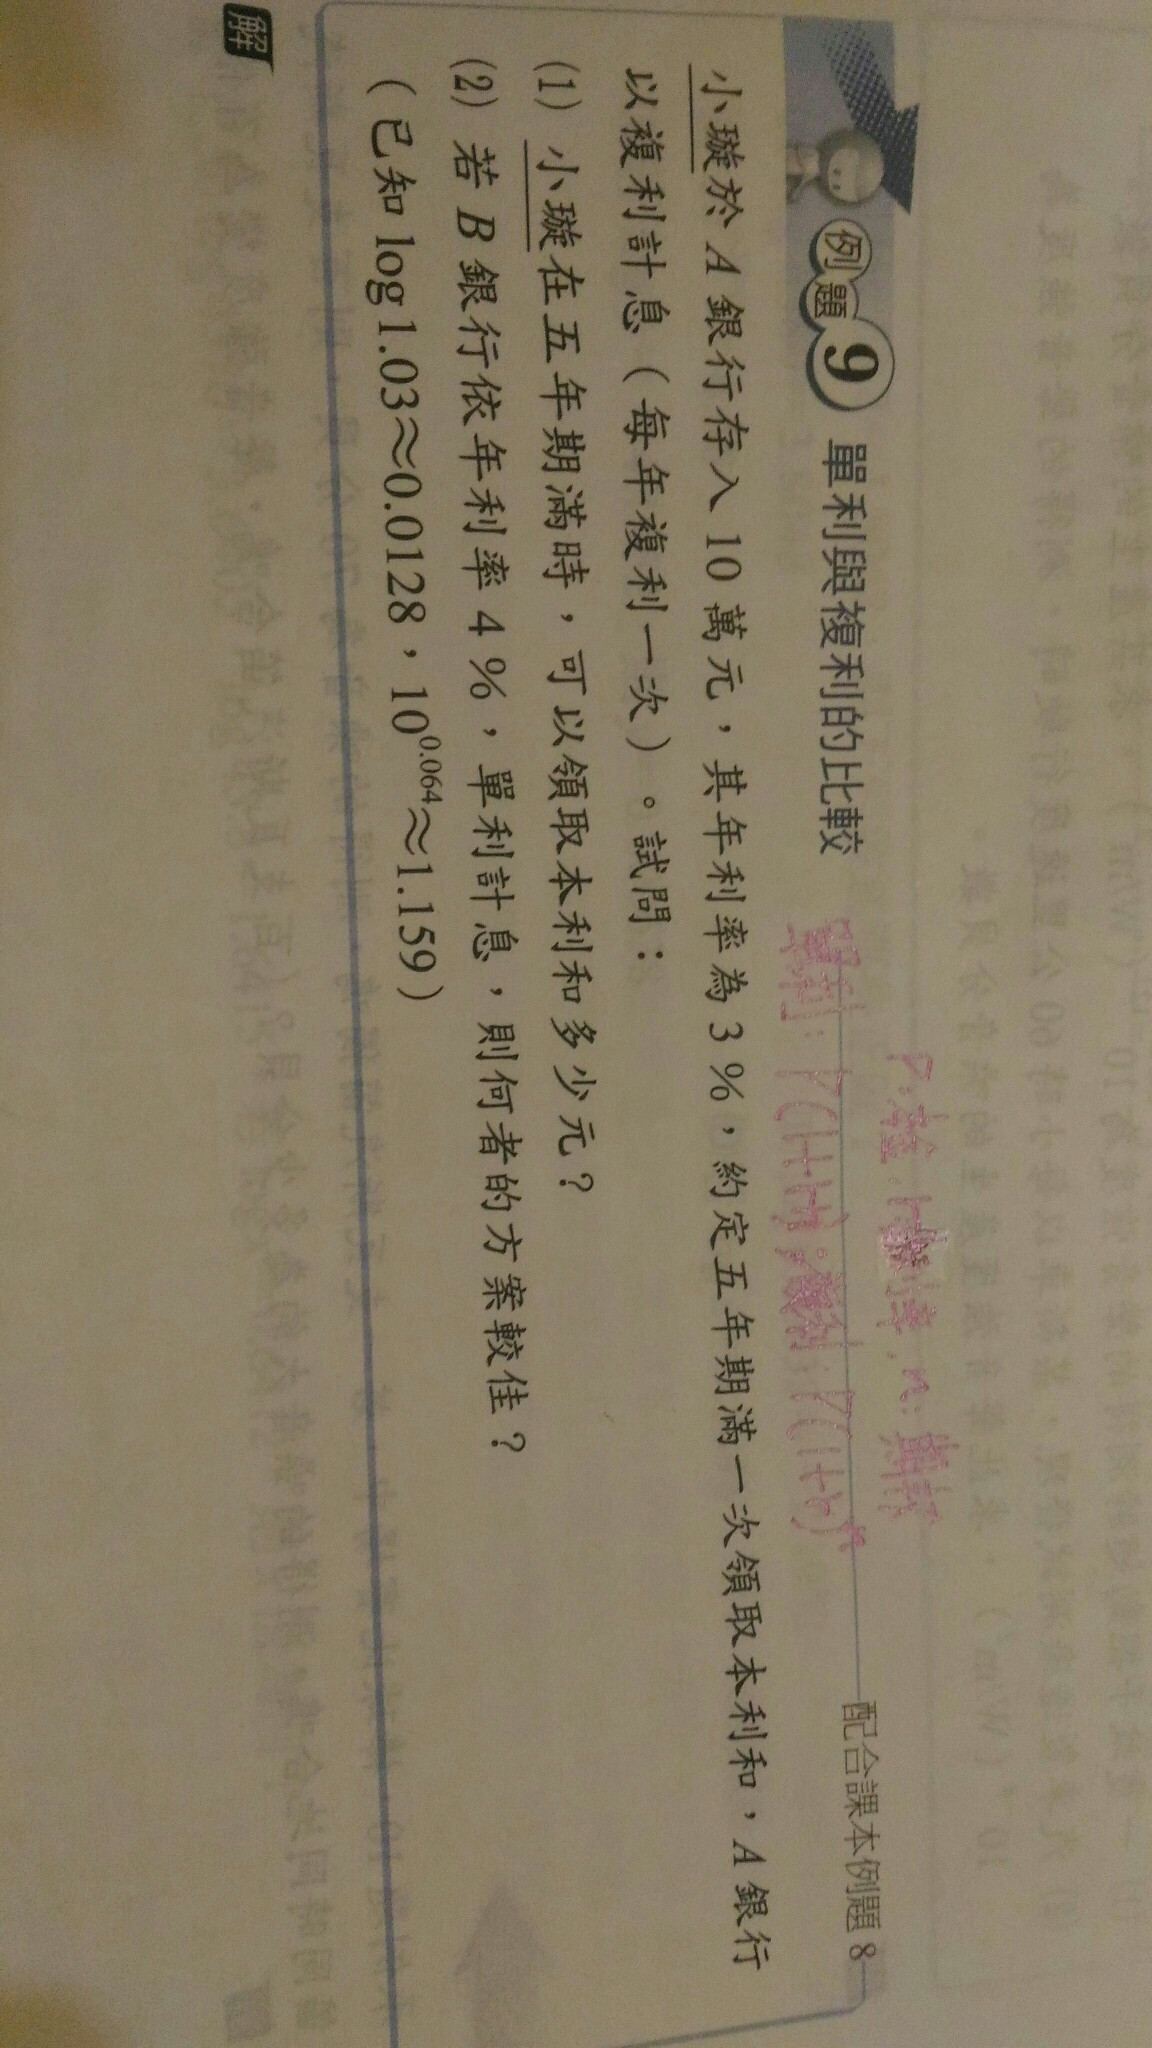 P:本金, r:利率, n:期數
例題 9 單利與複利的比較
單利:P(1+rn);複利:P(1+r)ⁿ
配合課本例題 8
小璇於 A 銀行存入 10 萬元，其年利率為 3 %，約定五年期滿一次領取本利和，A 銀行
以複利計息（每年複利一次）。試問：
(1) 小璇在五年期滿時，可以領取本利和多少元？
(2) 若 B 銀行依年利率 4 %，單利計息，則何者的方案較佳？
（已知 log 1.03≈0.0128，10^0.064≈1.159）
解